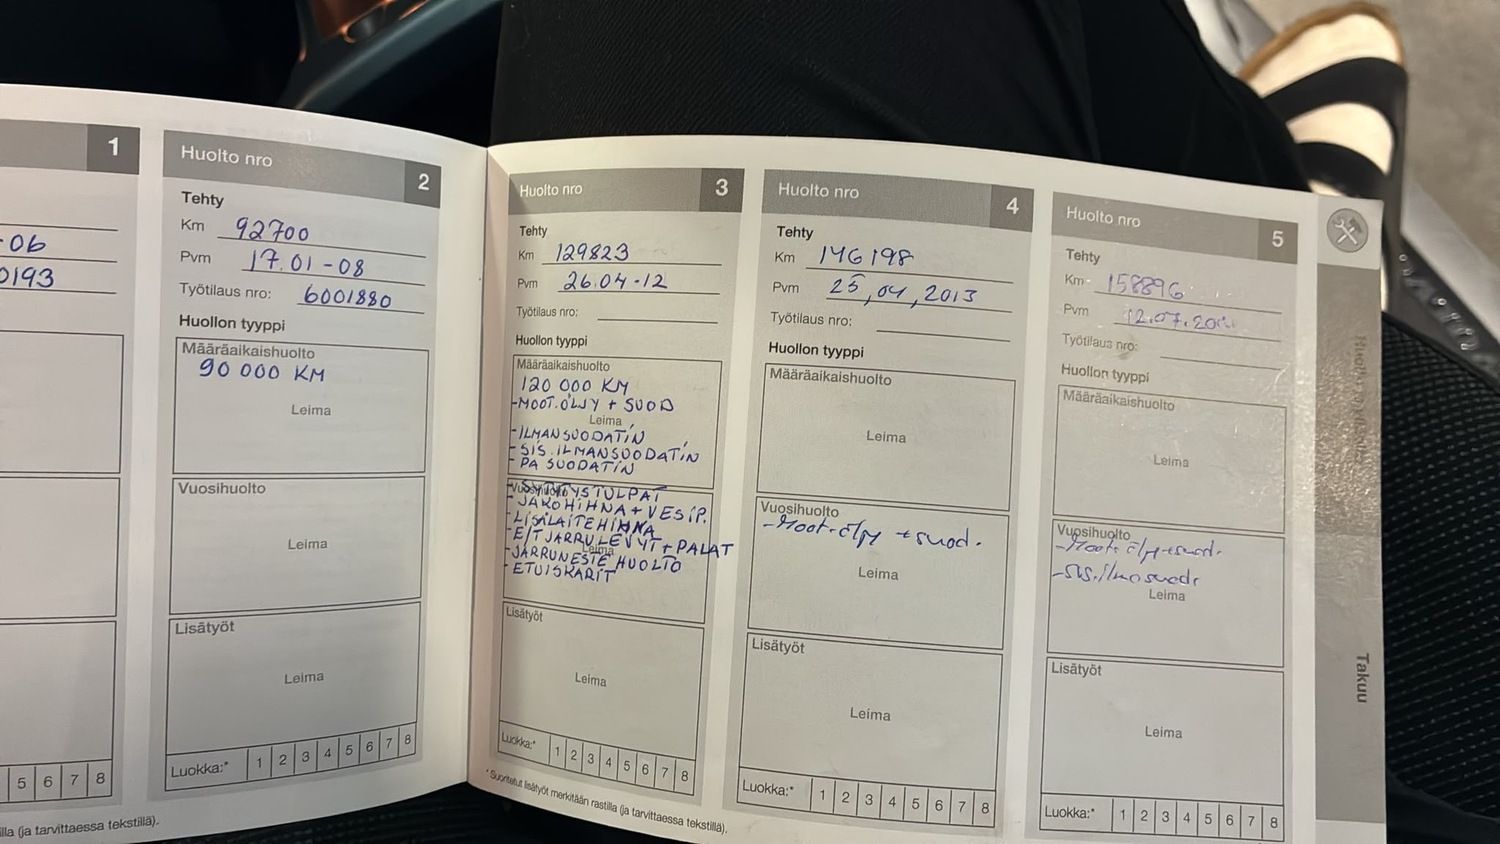 1
-06
0193
5 6 7 8
Huolto nro 2
Tehty
Km 92700
Pvm 17.01-08
Työtilaus nro: 6001880
Huollon tyyppi
Määräaikaishuolto
90 000 KM
Leima
Vuosihuolto
Leima
Lisätyöt
Leima
Luokka:* 1 2 3 4 5 6 7 8
illa (ja tarvittaessa tekstillä).
Huolto nro 3
Tehty
Km 129823
Pvm 26.04-12
Työtilaus nro:
Huollon tyyppi
Määräaikaishuolto
120 000 KM
-MOOT.ÖLJY + SUOD
Leima
-ILMANSUODATIN
-SIS.ILMANSUODATIN
-PA SUODATIN
Vuosihuolto
-SYTYTYSTULPAT
-JAKOHIHNA + VESIP.
-LISÄLAITEHIHNA
-E/T JARRULEVYT + PALAT
Leima
-JARRUNESTE HUOLTO
-ETUISKARIT
Lisätyöt
Leima
Luokka:* 1 2 3 4 5 6 7 8
* Suoritetut lisätyöt merkitään rastilla (ja tarvittaessa tekstillä).
Huolto nro 4
Tehty
Km 146198
Pvm 25,04,2013
Työtilaus nro:
Huollon tyyppi
Määräaikaishuolto
Leima
Vuosihuolto
-Moot.öljy + suod.
Leima
Lisätyöt
Leima
Luokka:* 1 2 3 4 5 6 7 8
Huolto nro 5
Tehty
Km 158896
Pvm 12.07.20
Työtilaus nro:
Huollon tyyppi
Määräaikaishuolto
Leima
Vuosihuolto
-Moot.öljy+suod.
-sis.ilmasuod.
Leima
Lisätyöt
Leima
Luokka:* 1 2 3 4 5 6 7 8
Takuu